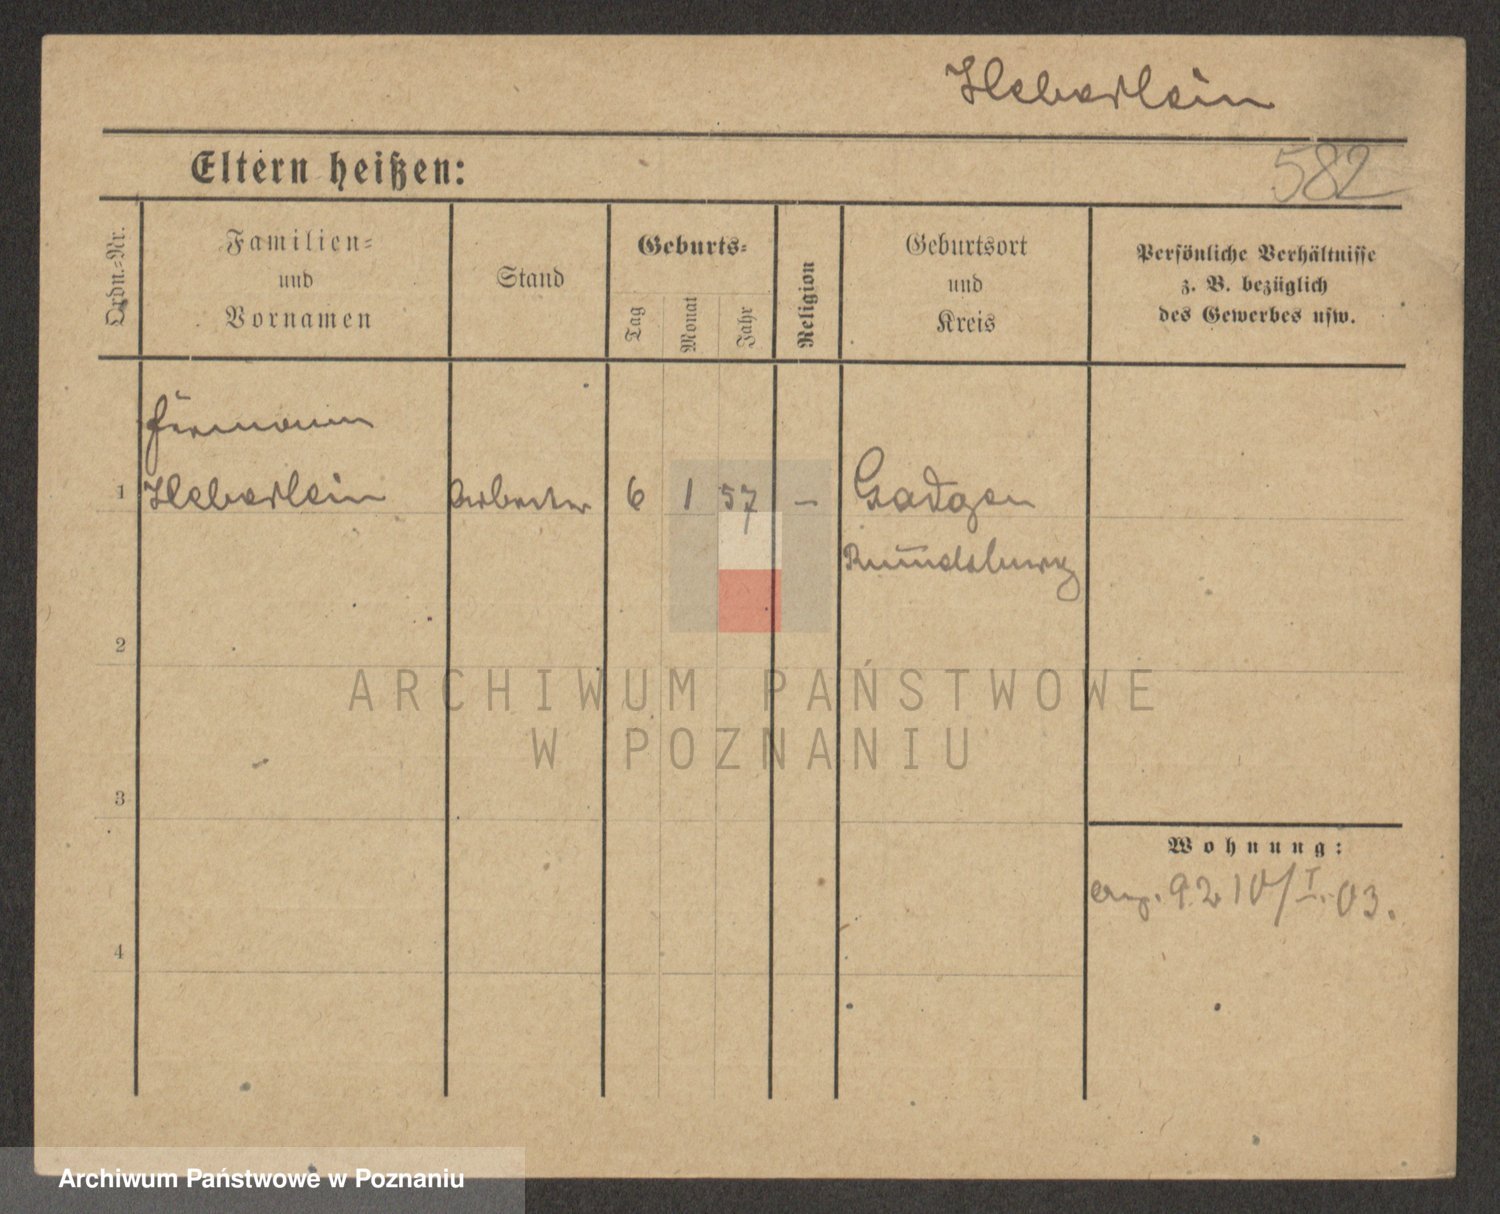 Heberlein
Eltern heißen:
582
Ordn.=Nr.
Familien=
und
Vornamen
Stand
Geburts=
Tag
Monat
Jahr
Religion
Geburtsort
und
Kreis
Persönliche Verhältnisse
z. B. bezüglich
des Gewerbes usw.
Hermann
1 Heberlein Arbeiter 6 1 57 –
2
3
4
Wohnung:
92 10/I. 03.
ARCHIWUM PAŃSTWOWE
W POZNANIU
Archiwum Państwowe w Poznaniu